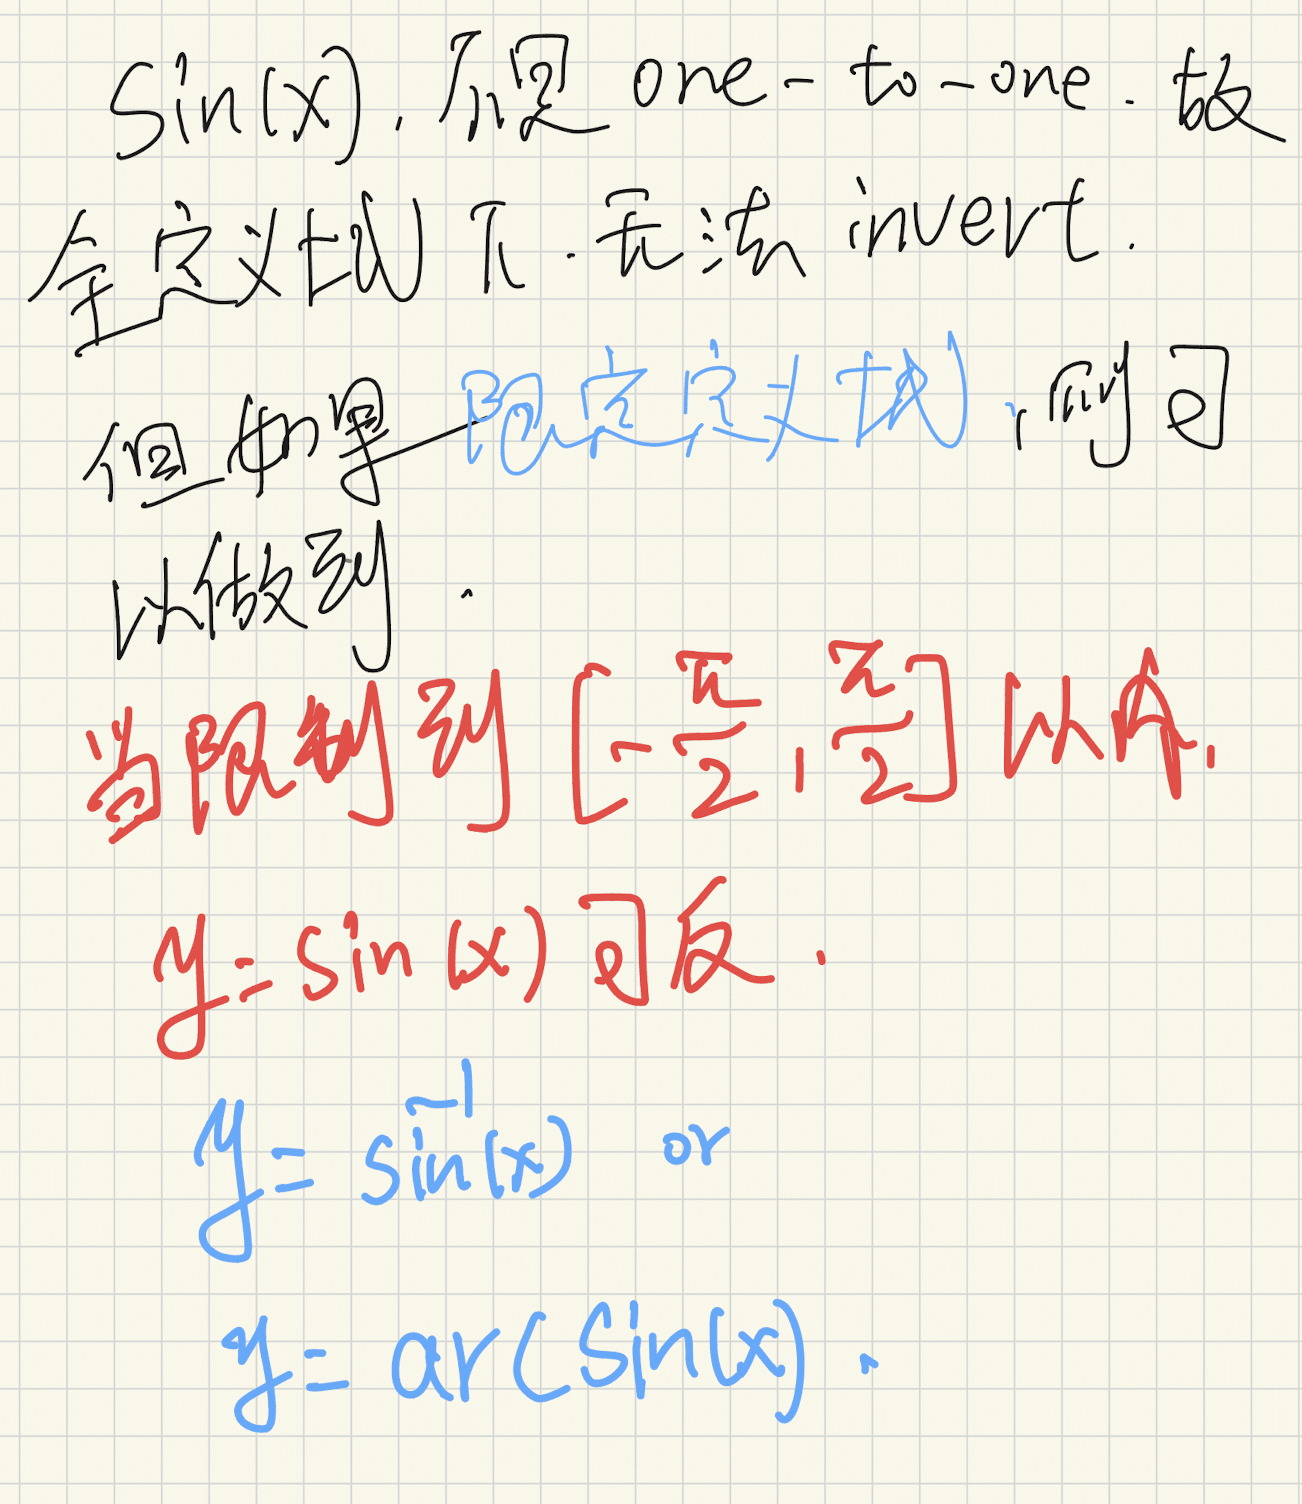 sin(x). 不是 one-to-one. 故
全定义域下. 无法 invert.
但如果限定定义域, 则可
以做到.
当限制到 [-π/2, π/2] 以内,
y = sin(x) 可反.
y = sin⁻¹(x) or
y = arcsin(x).